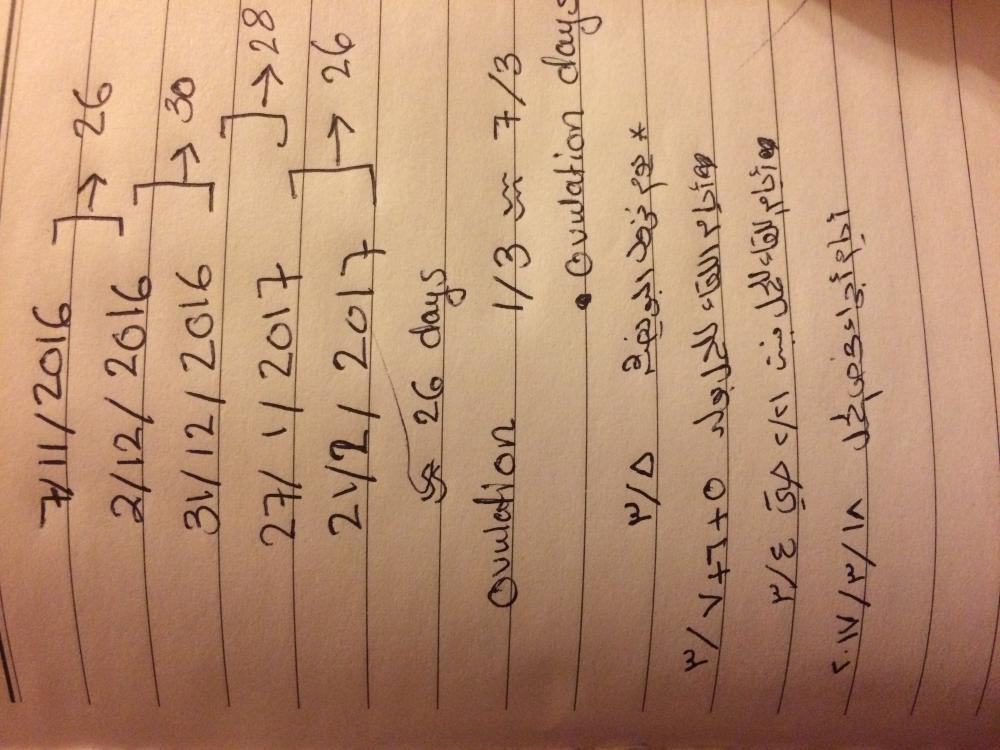 7/11/2016 ] → 26
2/12/2016 ] → 30
31/12/2016 ] → 28
27/1/2017 ] → 26
21/2/2017
≈ 26 days
Ovulation 1/3 ~ 7/3
• Ovulation days
* يوم نزول البويضة ٣/٥
أيام اللقاء للحمل بولد ٣/٧+٦+٥
أيام اللقاء للحمل ببنت حتى ٣/٤
أيام إجراء فحص حمل ٢٠١٧/٣/١٨